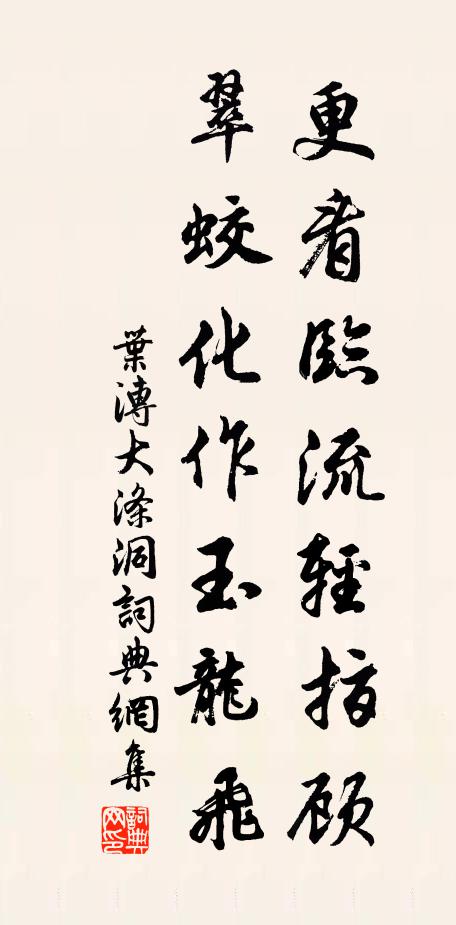 更看臨流輕指顧
翠蛟化作玉龍飛
葉溥大滌洞詞典網集
詞典网印